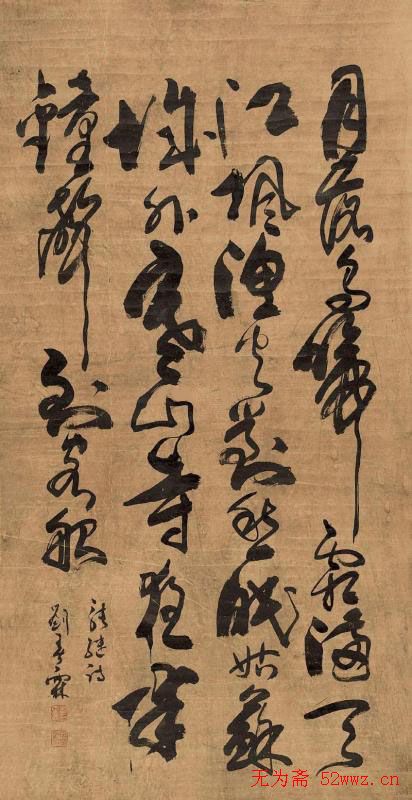 月落烏啼霜滿天
江楓漁火對愁眠姑蘇
城外寒山寺夜半
鐘聲到客船
張繼詩
劉霖
无为斋 52wwz.cn